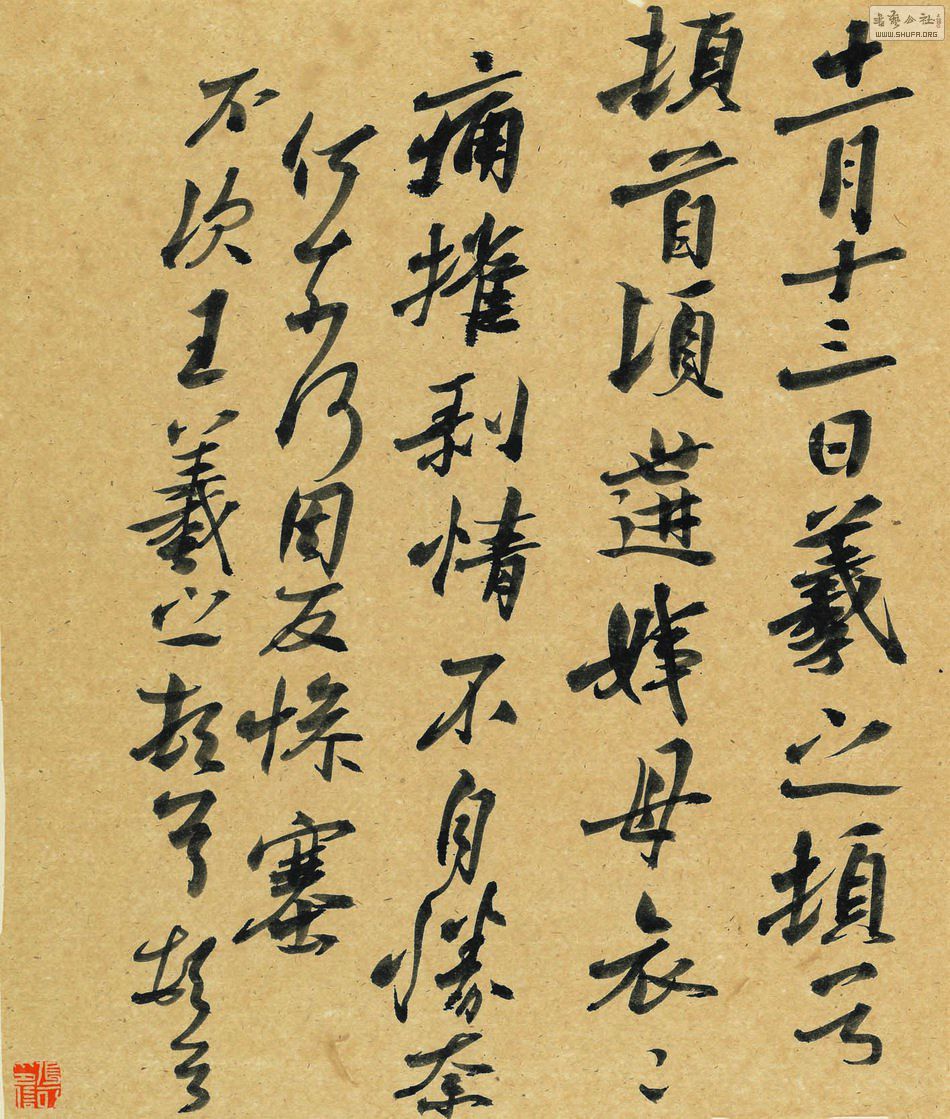 十一月十三日羲之頓首
頓首頃遘姨母哀〻
痛摧剝情不自勝奈
何奈何因反慘塞
不次王羲之頓首頓首
書藝公社
WWW.SHUFA.ORG